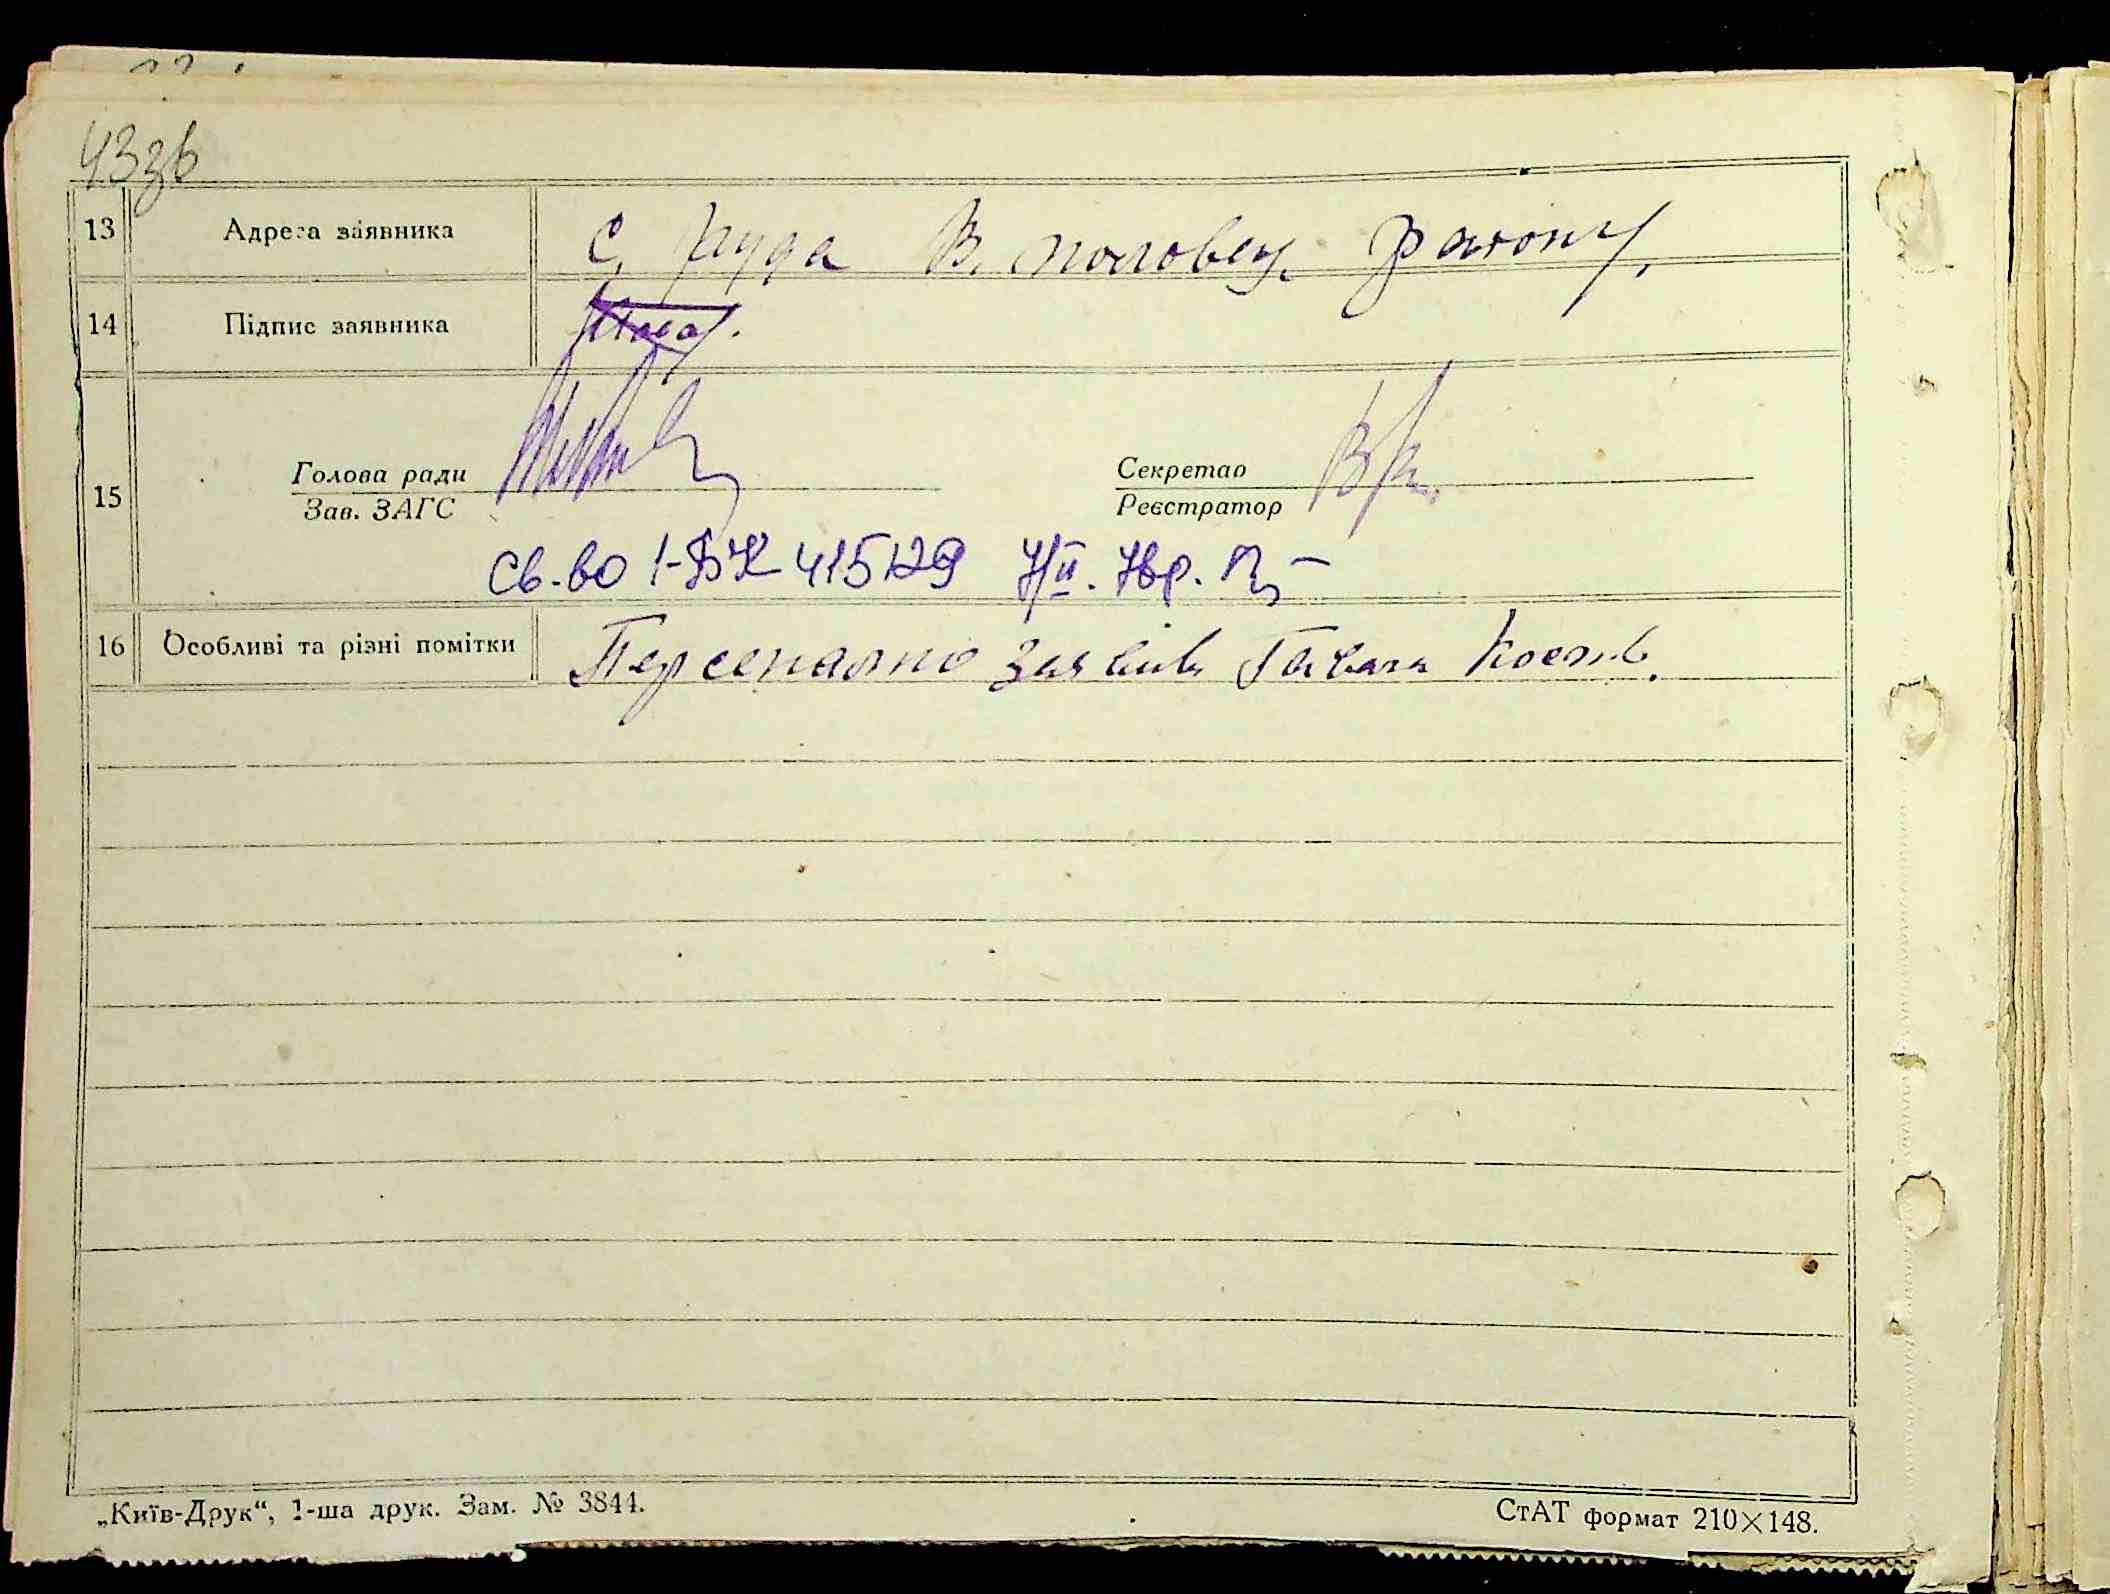 43зв
13 Адреса заявника С. Руда В. Половец. району.
14 Підпис заявника
15 Голова ради Секретар
Зав. ЗАГС Реєстратор
Св-во 1-БК 415129 7/ІІ. 78р.
16 Особливі та різні помітки Персонально заявив Гавана Костів.
„Київ-Друк“, 1-ша друк. Зам. № 3844. СтАТ формат 210×148.